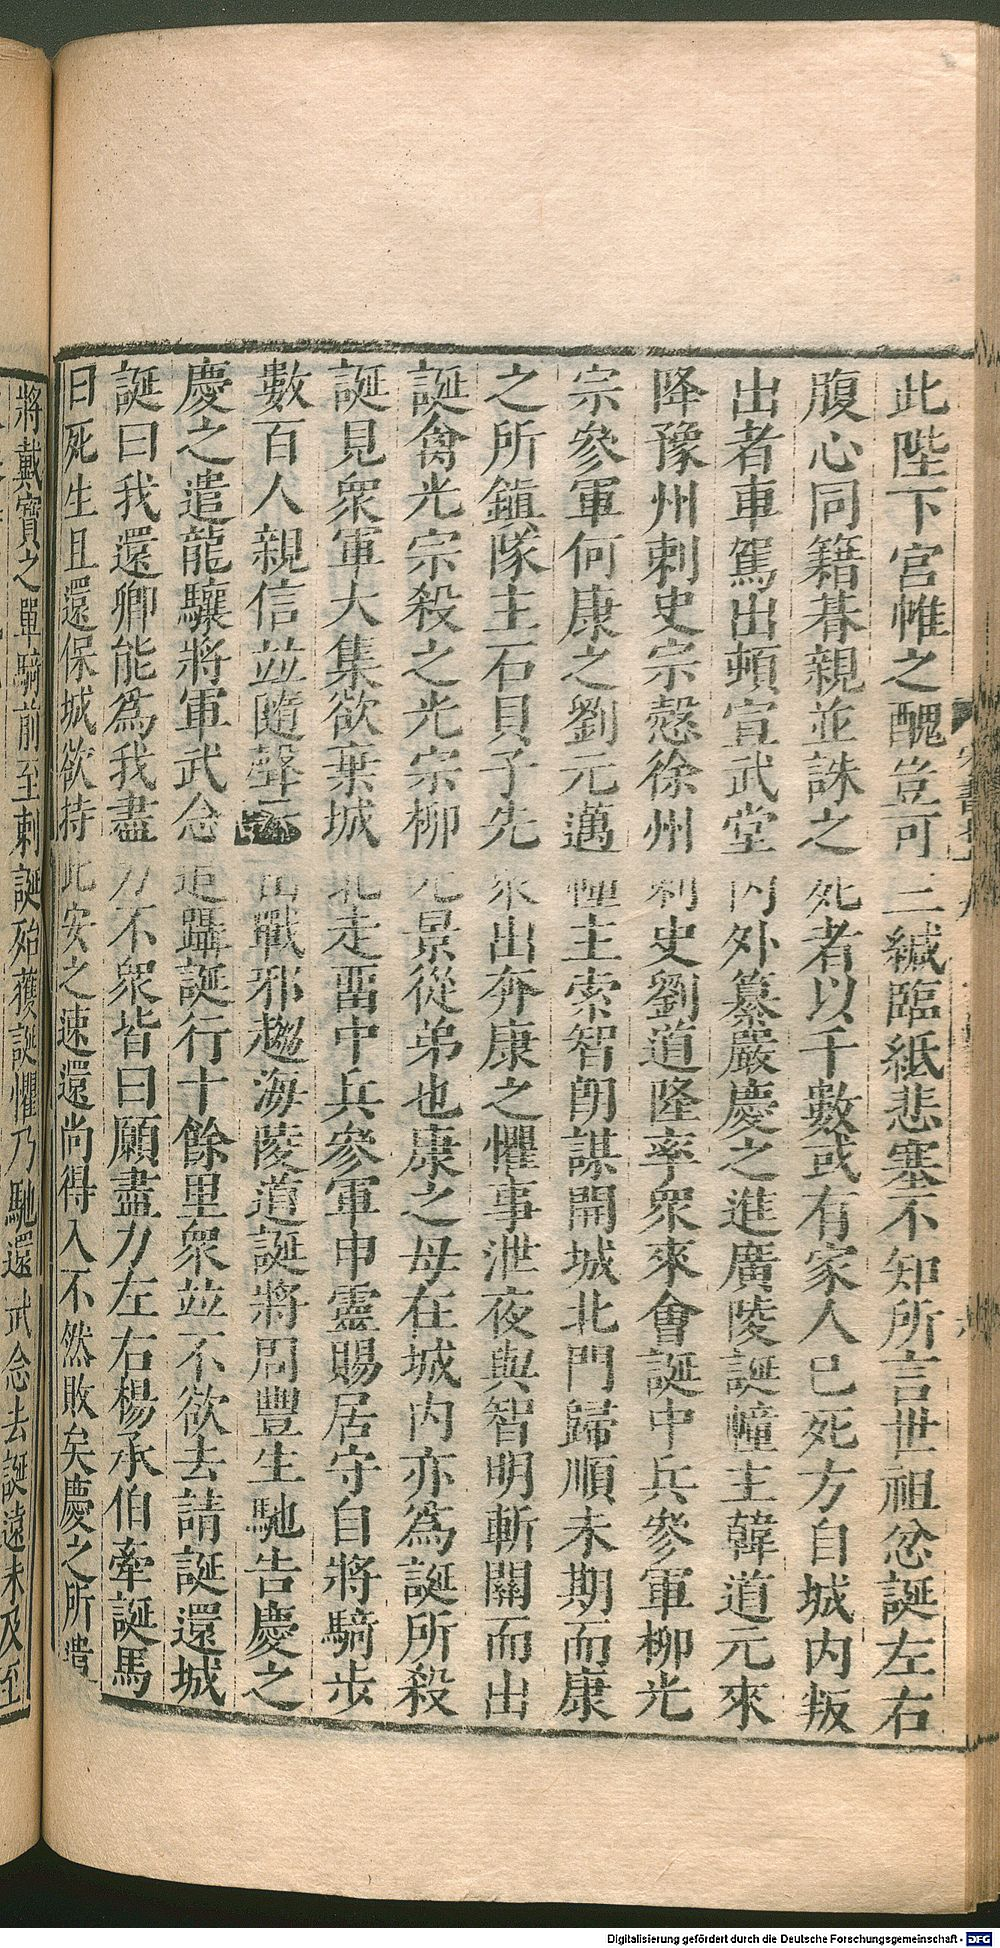 此陛下宮帷之醜豈可三緘臨紙悲塞不知所言世祖忿誕左右
腹心同籍朞親並誅之死者以千數或有家人已死方自城内叛
出者車駕出頓宣武堂内外纂嚴慶之進廣陵誕幢主韓道元來
降豫州刺史宗慤徐州刺史劉道隆率衆來會誕中兵參軍柳光
宗參軍何康之劉元邁幢主索智朗謀開城北門歸順未期而康
之所鎮隊主石貝子先衆出奔康之懼事泄夜與智明斬關而出
誕禽光宗殺之光宗柳元景從弟也康之母在城内亦爲誕所殺
誕見衆軍大集欲棄城北走畱中兵參軍申靈賜居守自將騎步
數百人親信並隨聲云出戰邪趨海陵道誕將周豐生馳告慶之
慶之遣龍驤將軍武念追躡誕行十餘里衆並不欲去請誕還城
誕曰我還卿能爲我盡力不衆皆曰願盡力左右楊承伯牽誕馬
曰死生且還保城欲持此安之速還尚得入不然敗矣慶之所遣
將戴寶之單騎前至刺誕殆獲誕懼乃馳還武念去誕遠未及至
Digitalisierung gefördert durch die Deutsche Forschungsgemeinschaft - DFG